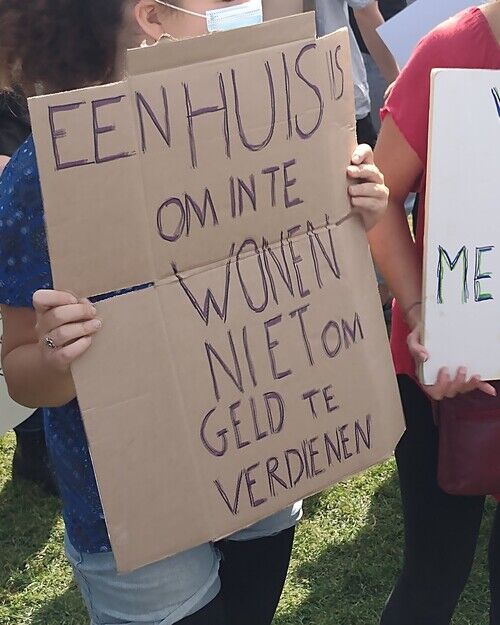 EEN HUIS IS
OM IN TE
WONEN
NIET OM
GELD TE
VERDIENEN
ME